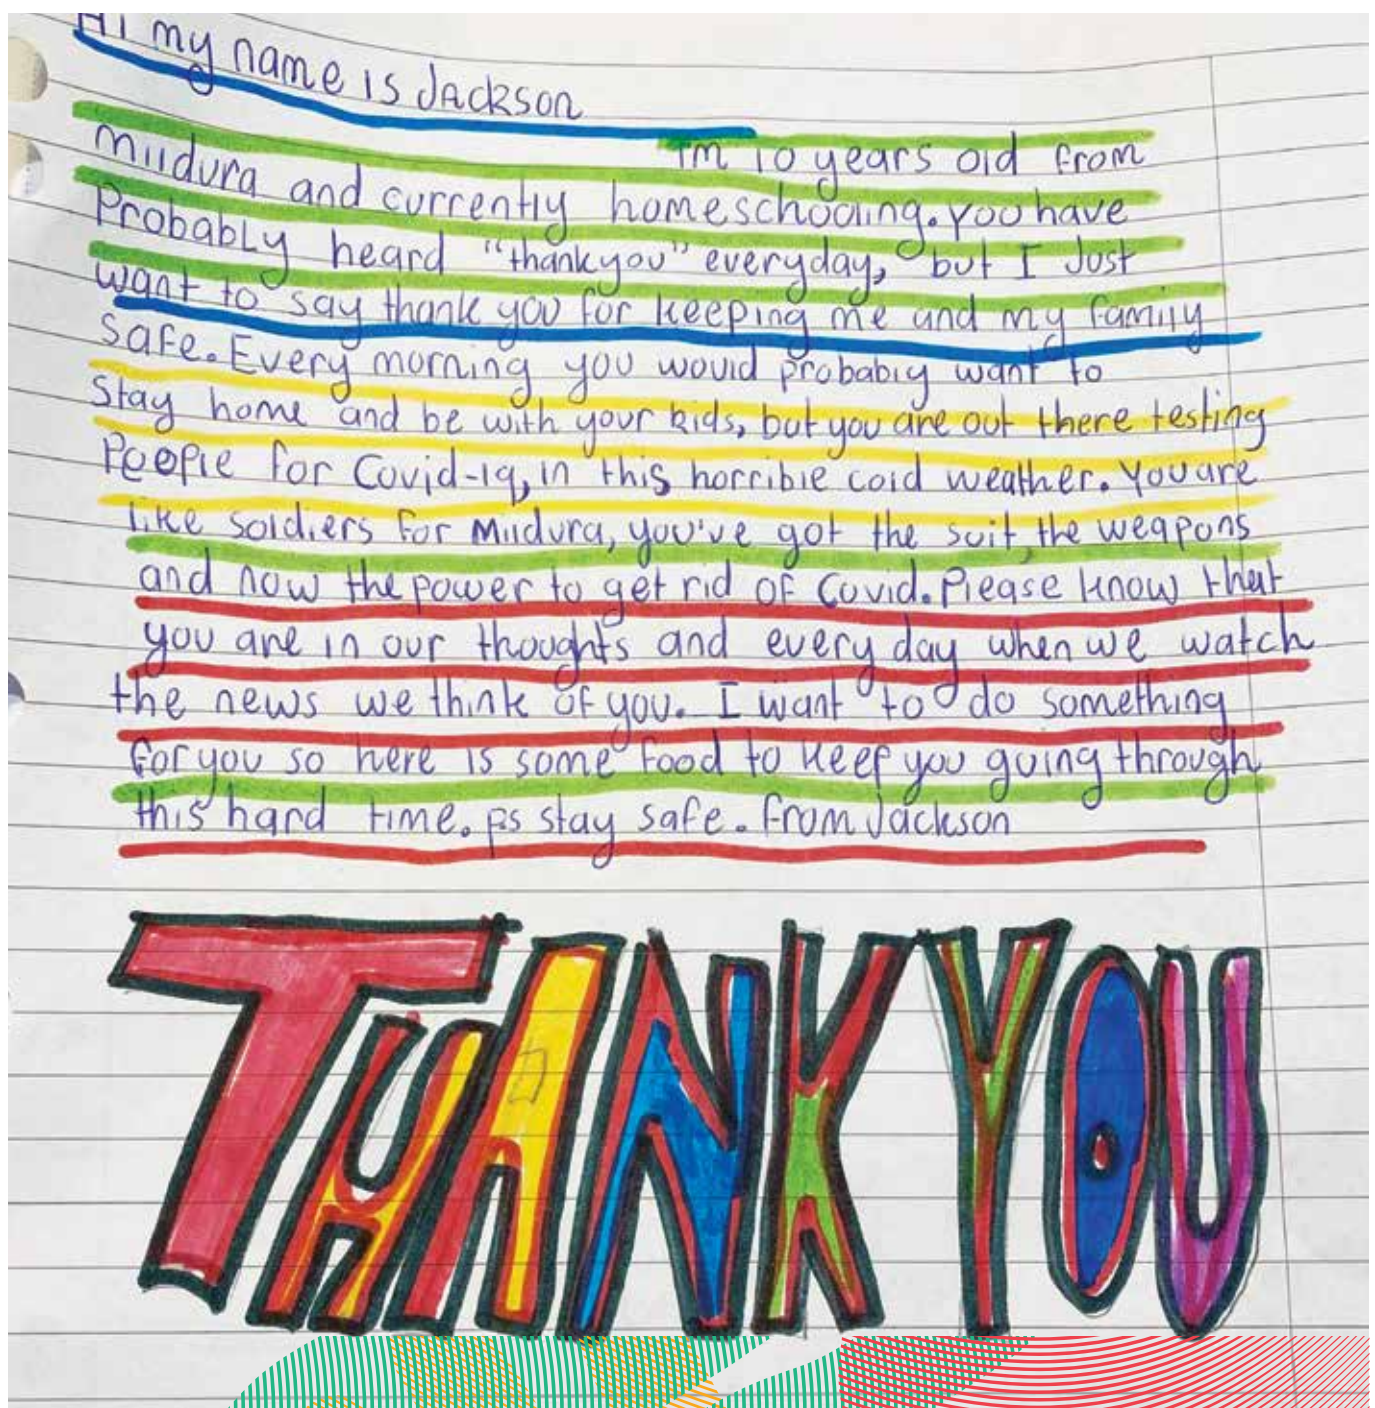 Hi my name is Jackson
Im 10 years old from
Mildura and currently homeschooling. You have
Probably heard "thankyou" everyday, but I Just
want to say thank you for keeping me and my family
safe. Every morning you would probably want to
Stay home and be with your kids, but you are out there testing
People for Covid-19, in this horrible cold weather. You are
like soldiers for Mildura, you've got the suit, the weapons
and now the power to get rid of Covid. Please know that
you are in our thoughts and every day when we watch
the news we think of you. I want to do something
for you so here is some food to keep you going through
this hard time. ps stay safe. From Jackson
THANK YOU